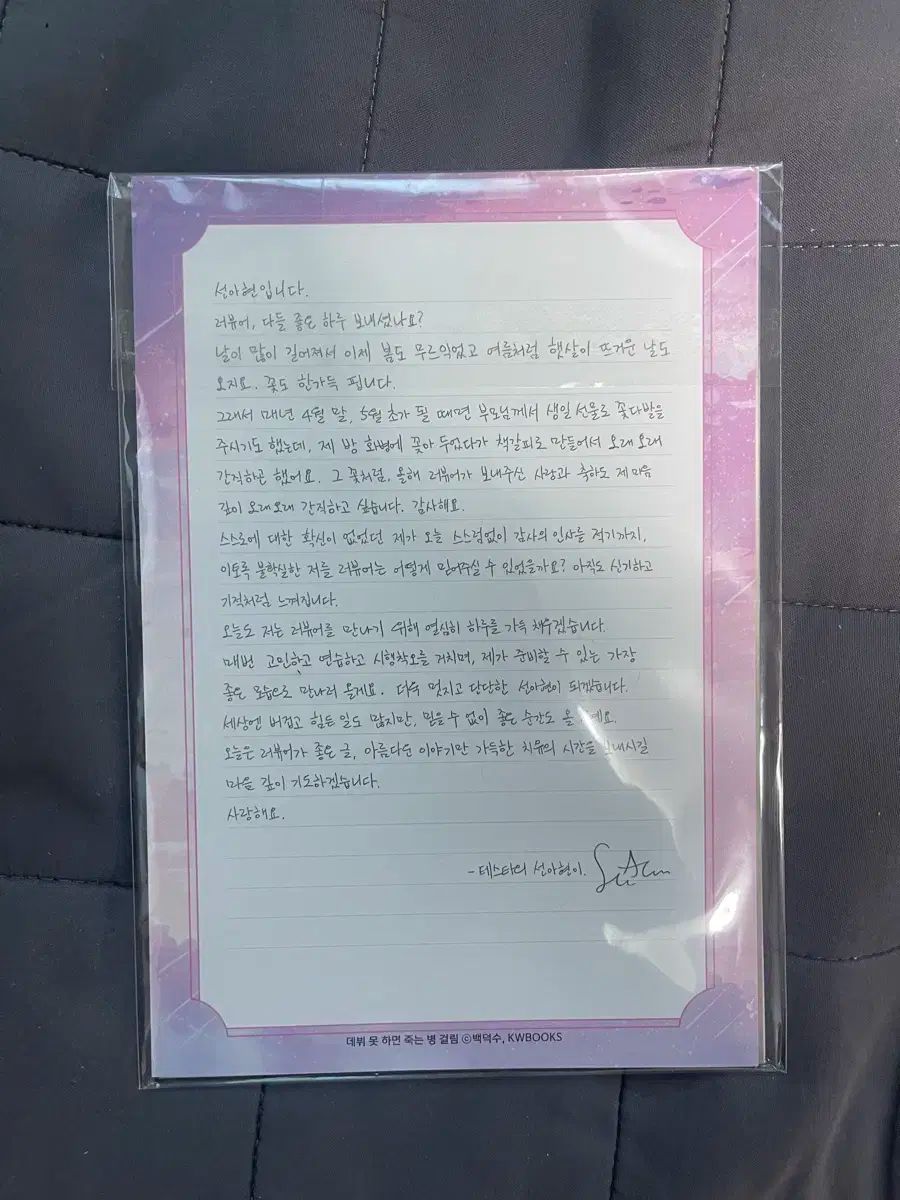 선아현입니다.
러뷰어, 다들 좋은 하루 보내셨나요?
날이 많이 길어져서 이제 봄도 무르익었고 여름처럼 햇살이 뜨거운 날도
오지요. 꽃도 한가득 핍니다.
그래서 매년 4월 말, 5월 초가 될 때면 부모님께서 생일 선물로 꽃다발을
주시기도 했는데, 제 방 화병에 꽂아 두었다가 책갈피로 만들어서 오래오래
간직하곤 했어요. 그 꽃처럼, 올해 러뷰어가 보내주신 사랑과 축하도 제 마음
깊이 오래오래 간직하고 싶습니다. 감사해요.
스스로에 대한 확신이 없었던 제가 오늘 스스럼없이 감사의 인사를 적기까지,
이토록 불확실한 저를 러뷰어는 어떻게 믿어주실 수 있었을까요? 아직도 신기하고
기적처럼 느껴집니다.
오늘도 저는 러뷰어를 만나기 위해 열심히 하루를 가득 채우겠습니다.
매번 고민하고 연습하고 시행착오를 거치며, 제가 준비할 수 있는 가장
좋은 모습으로 만나러 올게요. 더욱 멋지고 단단한 선아현이 되겠습니다.
세상엔 버겁고 힘든 일도 많지만, 믿을 수 없이 좋은 순간도 올
오늘은 러뷰어가 좋은 글, 아름다운 이야기만 가득한 치유의 시간을 보내시길
마음 깊이 기도하겠습니다.
사랑해요.
-테스타의 선아현이.
데뷔 못 하면 죽는 병 걸림 ⓒ백덕수, KWBOOKS